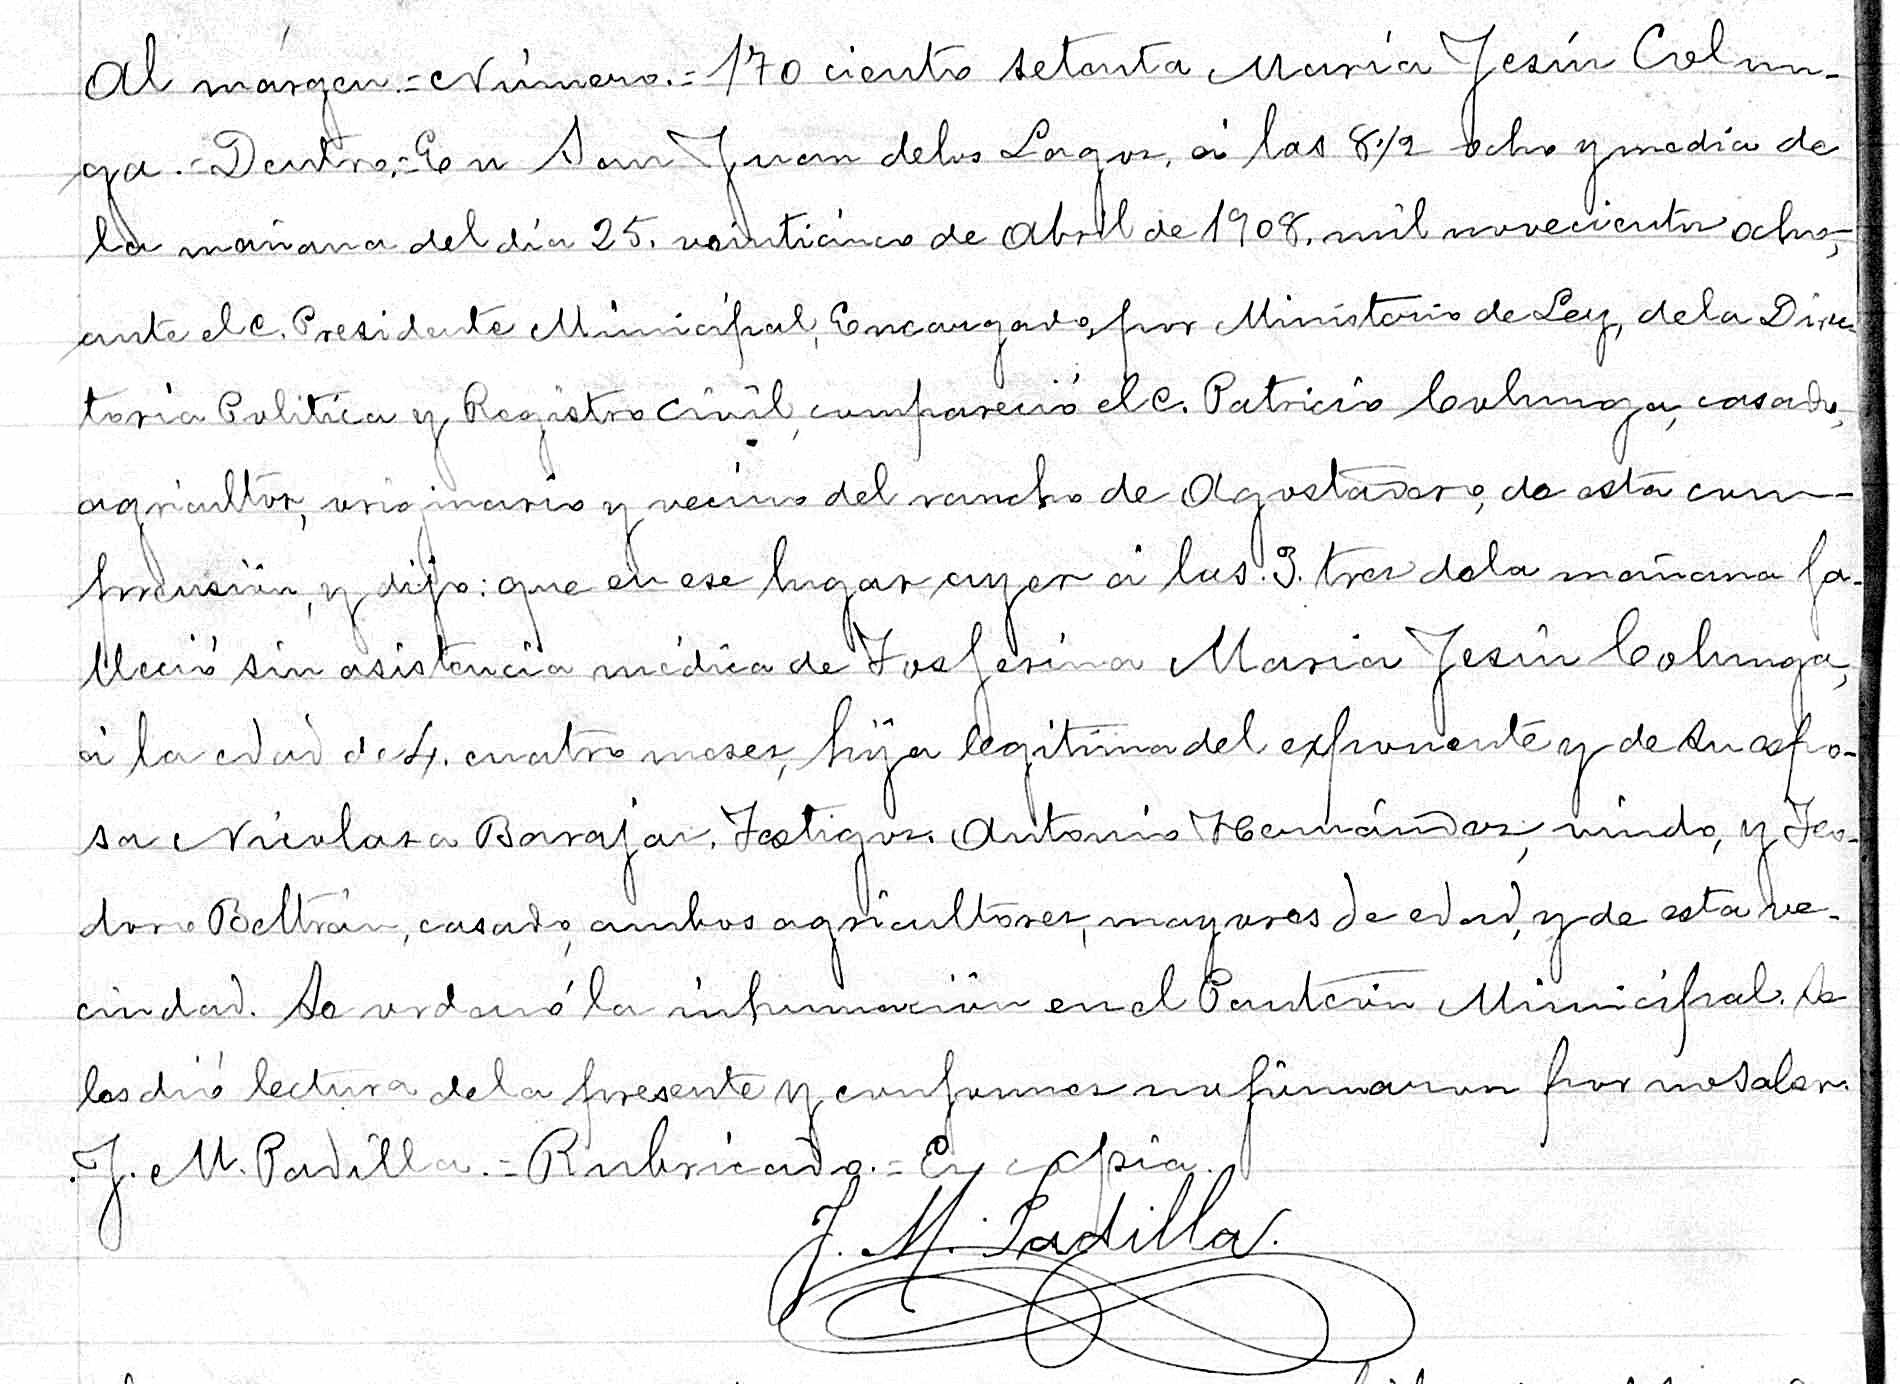 Al márgen.=Número.=170 ciento setenta María Jesús Colun-
ga.=Dentro.=En San Juan de los Lagos, á las 8½ ocho y media de
la mañana del día 25. veinticinco de Abril de 1908. mil novecientos ocho,
ante el C. Presidente Municipal, Encargado, por Ministerio de Ley, de la Direc-
toria Politica y Registro Civil, compareció el C. Patricio Colunga, casado,
agricultor, originario y vecino del rancho de Agostadero, de esta com-
prensión, y dijo: que en ese lugar ayer á las 3. tres de la mañana fa-
lleció sin asistencia médica de Tosferina Maria Jesús Colunga,
á la edad de 4. cuatro meses, hija legitima del exponente y de su espo-
sa Nicolasa Barajas. Testigos. Antonio Hernández, viudo, y Teo-
doro Beltrán, casado, ambos agricultores, mayores de edad, y de esta ve-
cindad. Se ordenó la inhumación en el Panteón Municipal. Se
les dió lectura de la presente y conformes no firmaron por no saber.
J. M. Padilla.=Rubricado.=Es copia.
J. M. Padilla.